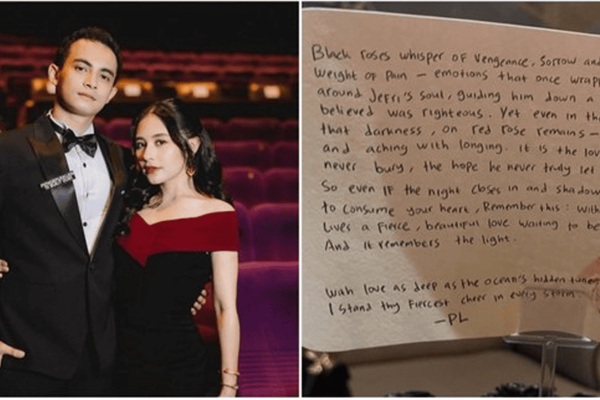 Black roses whisper of vengeance, sorrow and
weight of pain – emotions that once wrapp
around Jefri's soul, guiding him down a
believed was righteous. Yet even in th
that darkness, on red rose remains –
and aching with longing. It is the lov
never bury, the hope he never truly let
So even if the night closes in and shadow
to consume your heart, Remember this: with
lives a fierce, beautiful love waiting to be
And it remembers the light.
with love as deep as the ocean's hidden tunes
I stand thy fiercest cheer in every storm
–PL